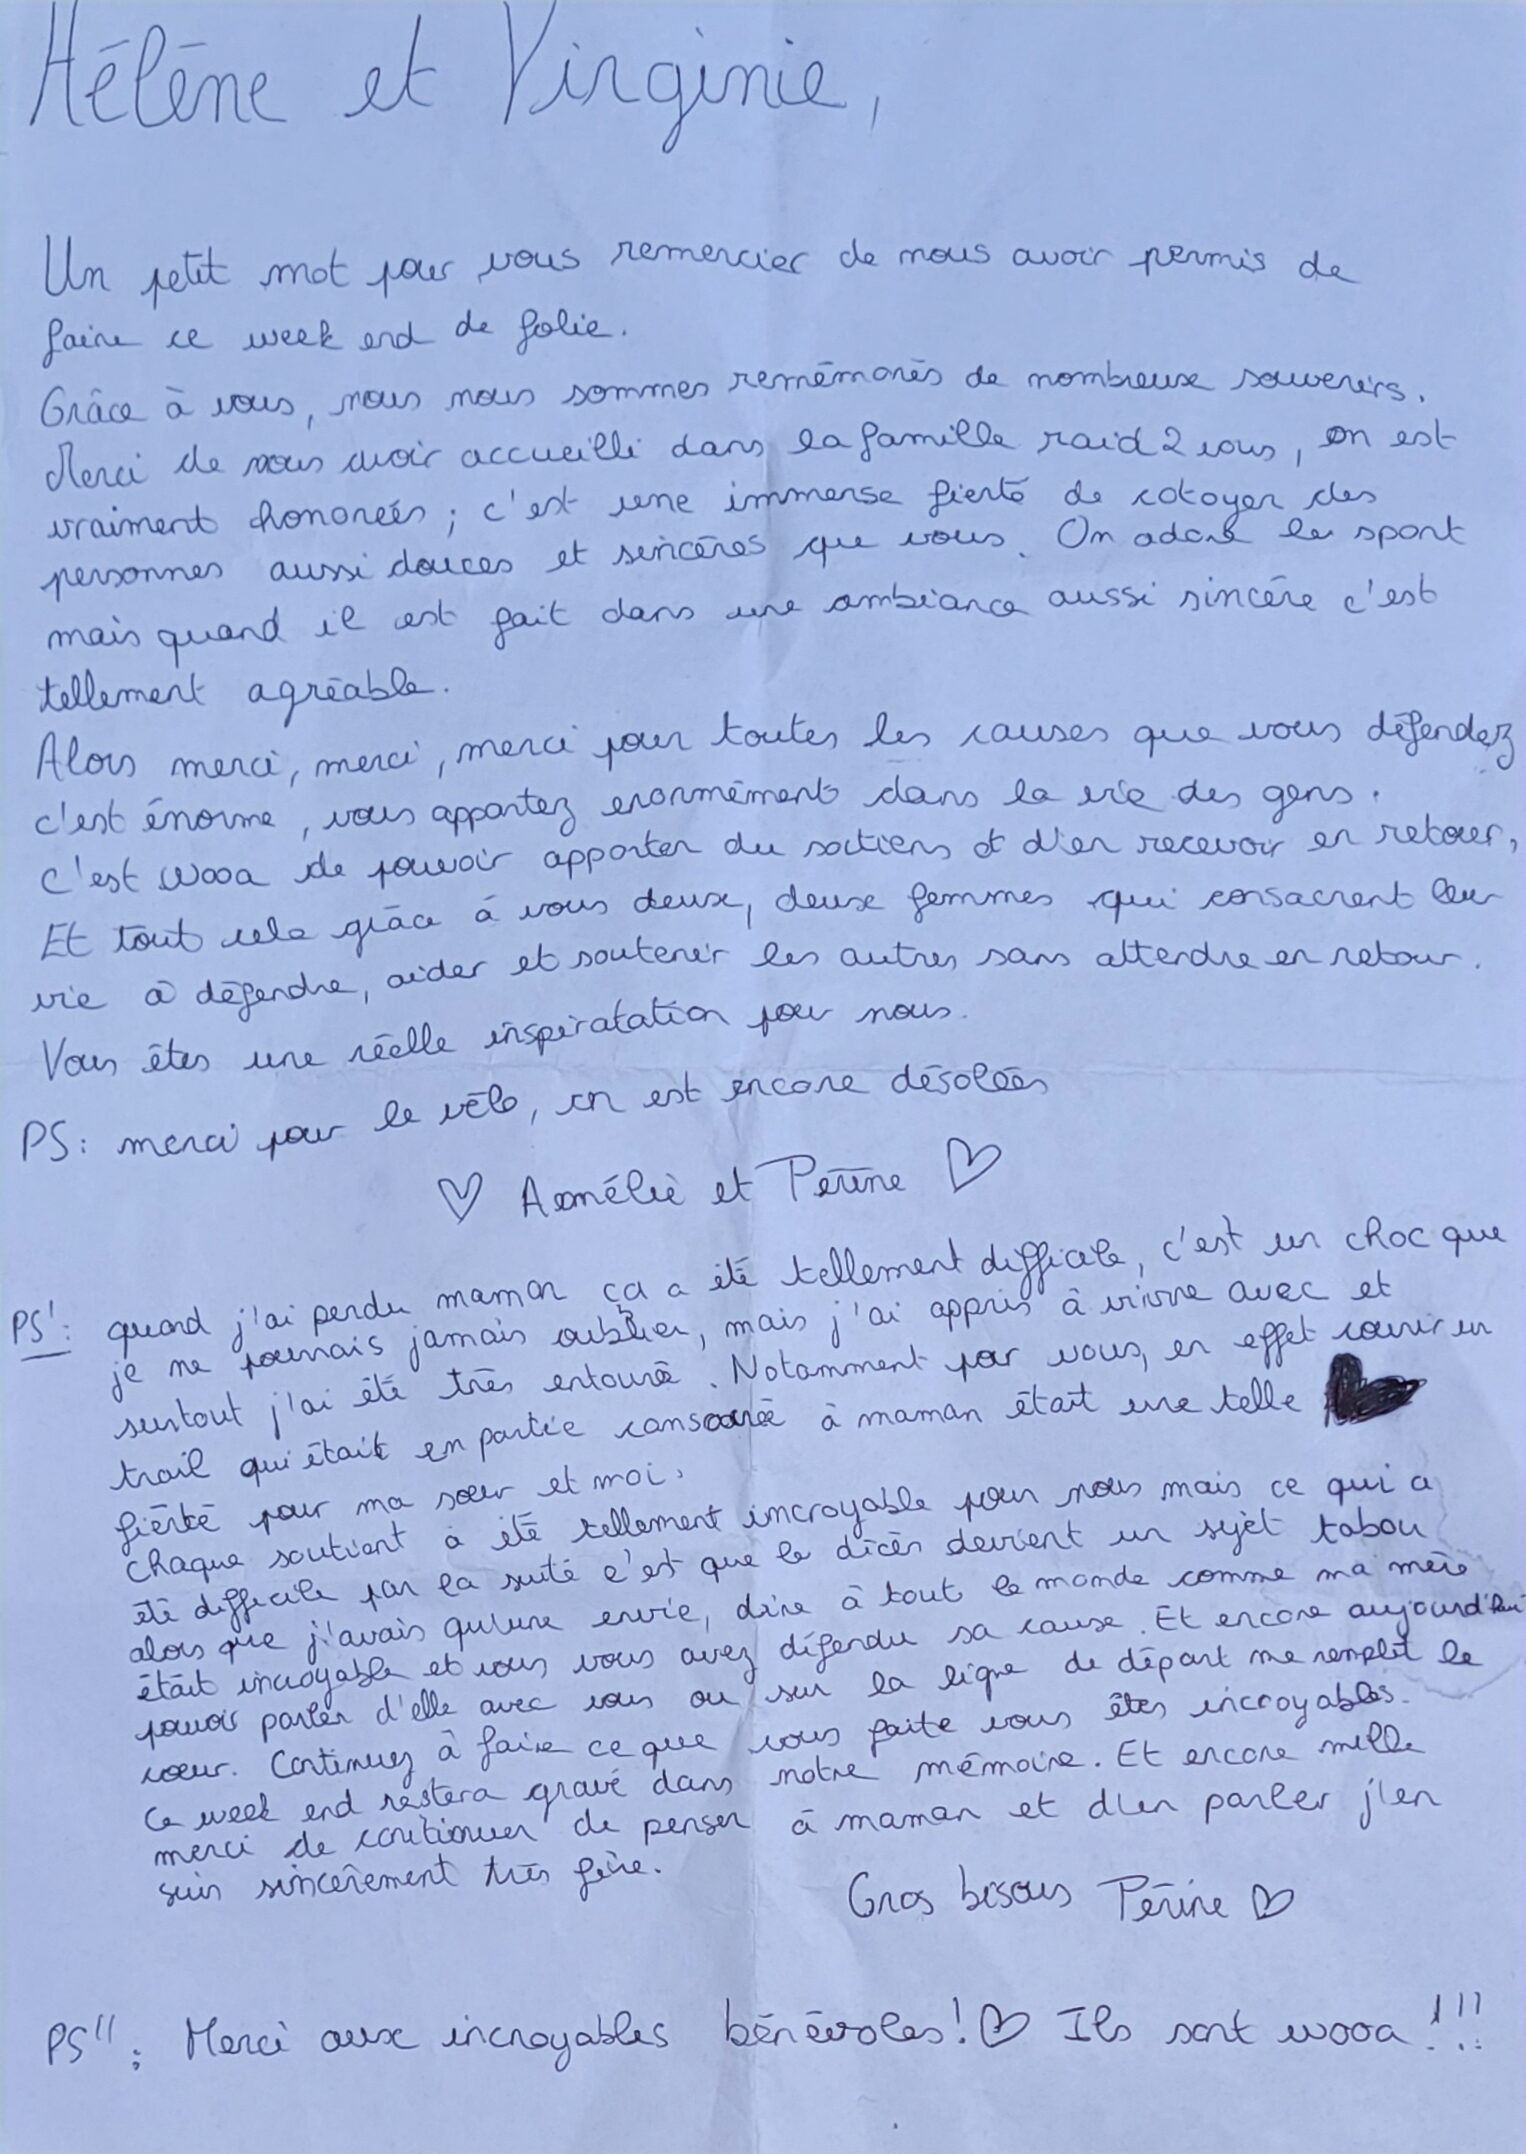 Hélène et Virginie,
Un petit mot pour vous remercier de nous avoir permis de
faire ce week end de folie.
Grâce à vous, nous nous sommes remémorés de nombreux souvenirs.
Merci de nous avoir accueilli dans la famille raid 2 vous, on est
vraiment honorées ; c'est une immense fierté de cotoyer des
personnes aussi douces et sincères que vous. On adore le sport
mais quand il est fait dans une ambiance aussi sincère c'est
tellement agréable.
Alors merci, merci, merci pour toutes les causes que vous défendez
c'est énorme, vous apportez enormément dans la vie des gens.
C'est wooa de pouvoir apporter du soutiens et d'en recevoir en retour,
Et tout cela grâce à vous deux, deux femmes qui consacrent leur
vie à défendre, aider et soutenir les autres sans attendre en retour.
Vous êtes une réelle inspiratation pour nous.
PS : merci pour le vélo, on est encore désolées
♡ Amélie et Périne ♡
PS' : quand j'ai perdu maman ça a été tellement difficile, c'est un choc que
je ne pourrais jamais oublier, mais j'ai appris à vivre avec et
surtout j'ai été très entouré. Notamment par vous, en effet courir un
trail qui était en partie consacrée à maman était une telle
fierté pour ma sœur et moi.
Chaque soutient à été tellement incroyable pour nous mais ce qui a
été difficile par la suite c'est que le décès devient un sujet tabou
alors que j'avais qu'une envie, dire à tout le monde comme ma mère
était incroyable et vous vous avez défendu sa cause. Et encore aujourd'hui
pouvoir parler d'elle avec vous ou sur la ligne de départ me remplit le
cœur. Continuez à faire ce que vous faite vous êtes incroyables.
Ce week end restera gravé dans notre mémoire. Et encore mille
merci de continuer de penser à maman et d'en parler j'en
suis sincèrement très fière.
Gros bisous Périne ♡
PS'' : Merci aux incroyables bénévoles ! ♡ Ils sont wooa !!!